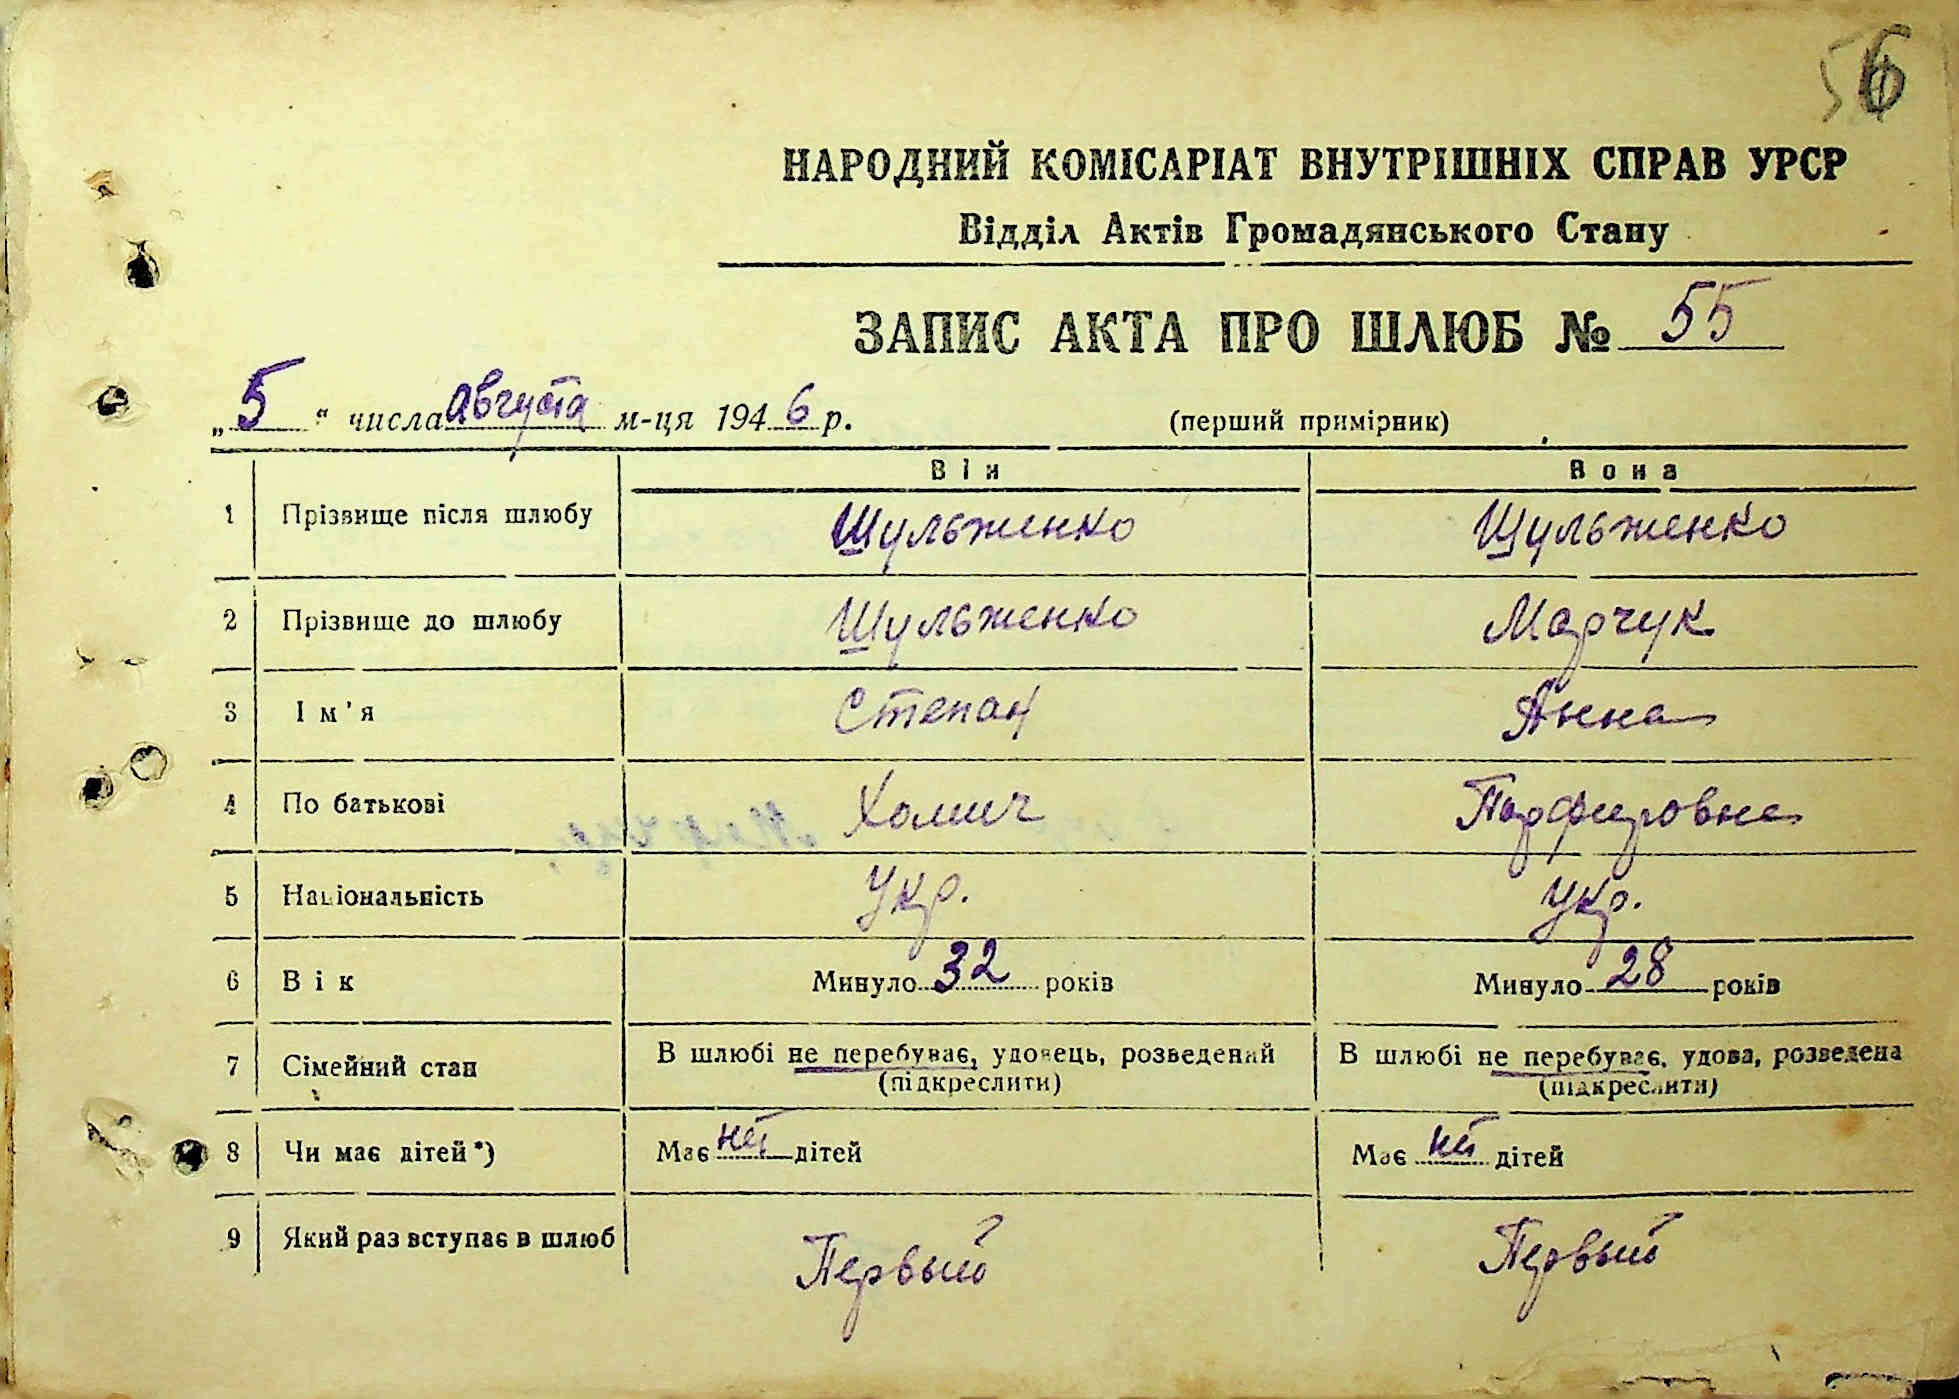 56
НАРОДНИЙ КОМІСАРІАТ ВНУТРІШНІХ СПРАВ УРСР
Відділ Актів Громадянського Стану
ЗАПИС АКТА ПРО ШЛЮБ № 55
„5“ числа августа м-ця 1946 р. (перший примірник)
Він Вона
1 Прізвище після шлюбу Шульженко Шульженко
2 Прізвище до шлюбу Шульженко Марчук
3 Ім'я Степан Анна
4 По батькові Хомич Парфировна
5 Національність Укр. Укр.
6 Вік Минуло 32 років Минуло 28 років
7 Сімейний стан В шлюбі не перебуває, удовець, розведений В шлюбі не перебуває, удова, розведена
(підкреслити) (підкреслити)
8 Чи має дітей*) Має нет дітей Має нет дітей
9 Який раз вступає в шлюб Первый Первый